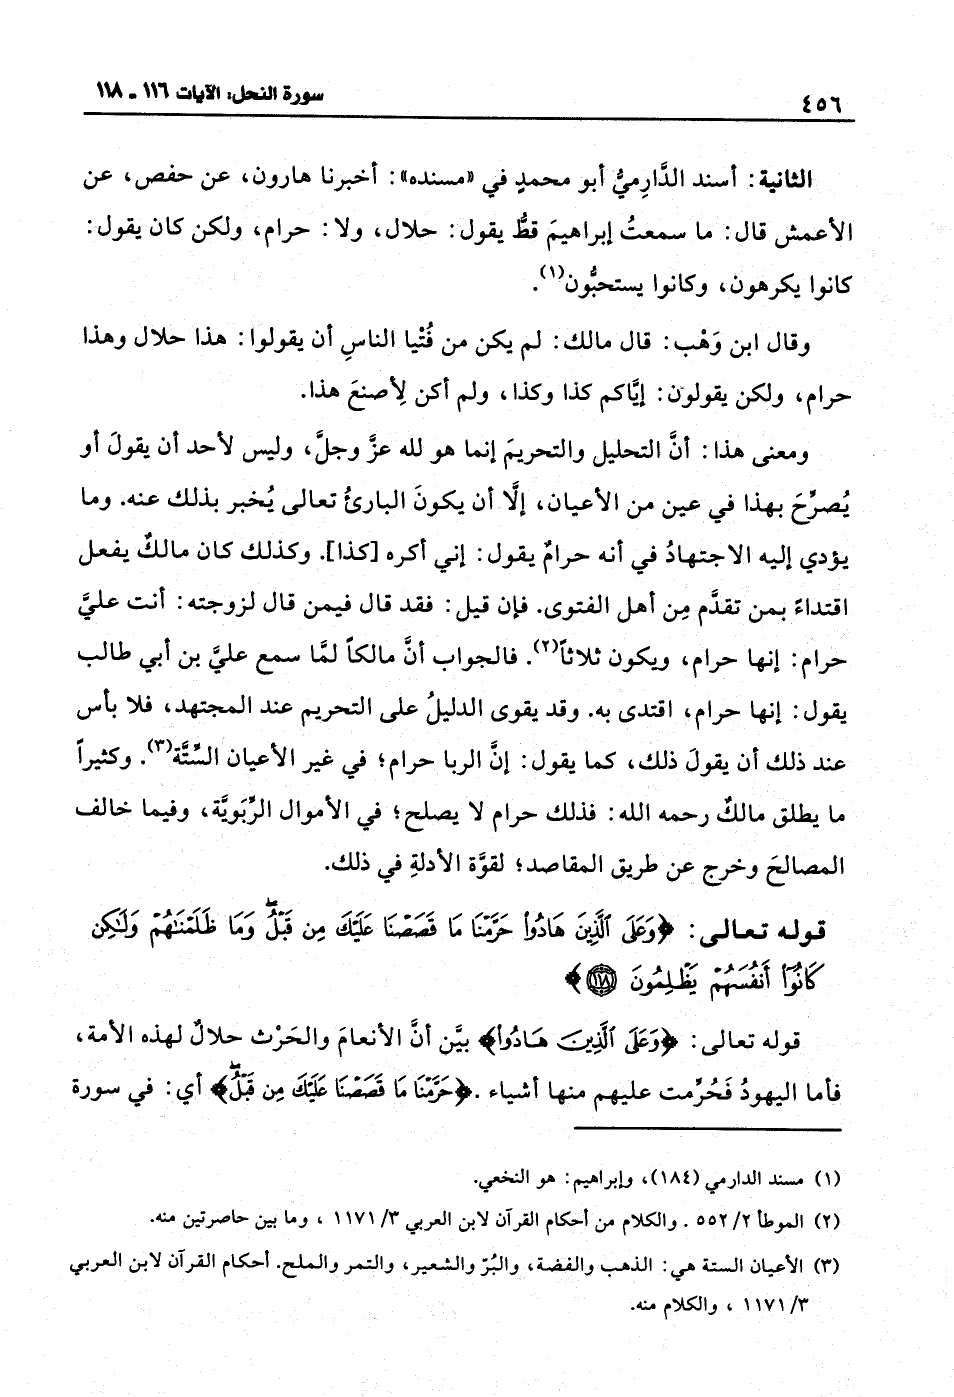 ٤٥٦
سورة النحل: الآيات ١١٦ - ١١٨
الثانية: أسند الدَّارِميُّ أبو محمدٍ في «مسنده»: أخبرنا هارون، عن حفص، عن
الأعمش قال: ما سمعتُ إبراهيمَ قطُّ يقول: حلال، ولا: حرام، ولكن كان يقول:
كانوا يكرهون، وكانوا يستحبُّون(١).
وقال ابن وَهْب: قال مالك: لم يكن من فُتْيا الناسِ أن يقولوا: هذا حلال وهذا
حرام، ولكن يقولون: إيَّاكم كذا وكذا، ولم أكن لِأصنعَ هذا.
ومعنى هذا: أنَّ التحليل والتحريمَ إنما هو لله عزَّ وجلَّ، وليس لأحد أن يقولَ أو
يُصرِّحَ بهذا في عين من الأعيان، إلَّا أن يكونَ البارئُ تعالى يُخبر بذلك عنه. وما
يؤدي إليه الاجتهادُ في أنه حرامٌ يقول: إني أكره [كذا]. وكذلك كان مالكٌ يفعل
اقتداءً بمن تقدَّم مِن أهل الفتوى. فإن قيل: فقد قال فيمن قال لزوجته: أنت عليَّ
حرام: إنها حرام، ويكون ثلاثاً(٢). فالجواب أنَّ مالكاً لمَّا سمع عليَّ بن أبي طالب
يقول: إنها حرام، اقتدى به. وقد يقوى الدليلُ على التحريم عند المجتهد، فلا بأس
عند ذلك أن يقولَ ذلك، كما يقول: إنَّ الربا حرام؛ في غير الأعيان السِّتَّة(٣). وكثيراً
ما يطلق مالكٌ رحمه الله: فذلك حرام لا يصلح؛ في الأموال الرِّبَويَّة، وفيما خالف
المصالحَ وخرج عن طريق المقاصد؛ لقوَّة الأدلةِ في ذلك.
قوله تعالى: ﴿وَعَلَى ٱلَّذِينَ هَادُوا۟ حَرَّمْنَا مَا قَصَصْنَا عَلَيْكَ مِن قَبْلُ ۖ وَمَا ظَلَمْنَٰهُمْ وَلَٰكِن
كَانُوٓا۟ أَنفُسَهُمْ يَظْلِمُونَ ١١٨﴾
قوله تعالى: ﴿وَعَلَى ٱلَّذِينَ هَادُوا۟﴾ بيَّن أنَّ الأنعامَ والحَرْث حلالٌ لهذه الأمة،
فأما اليهودُ فَحُرِّمت عليهم منها أشياء. ﴿حَرَّمْنَا مَا قَصَصْنَا عَلَيْكَ مِن قَبْلُ ۖ﴾ أي: في سورة
(١) مسند الدارمي (١٨٤)، وإبراهيم: هو النخعي.
(٢) الموطأ ٥٥٢/٢ . والكلام من أحكام القرآن لابن العربي ١١٧١/٣ ، وما بين حاصرتين منه.
(٣) الأعيان الستة هي: الذهب والفضة، والبُرّ والشعير، والتمر والملح. أحكام القرآن لابن العربي
١١٧١/٣ ، والكلام منه.